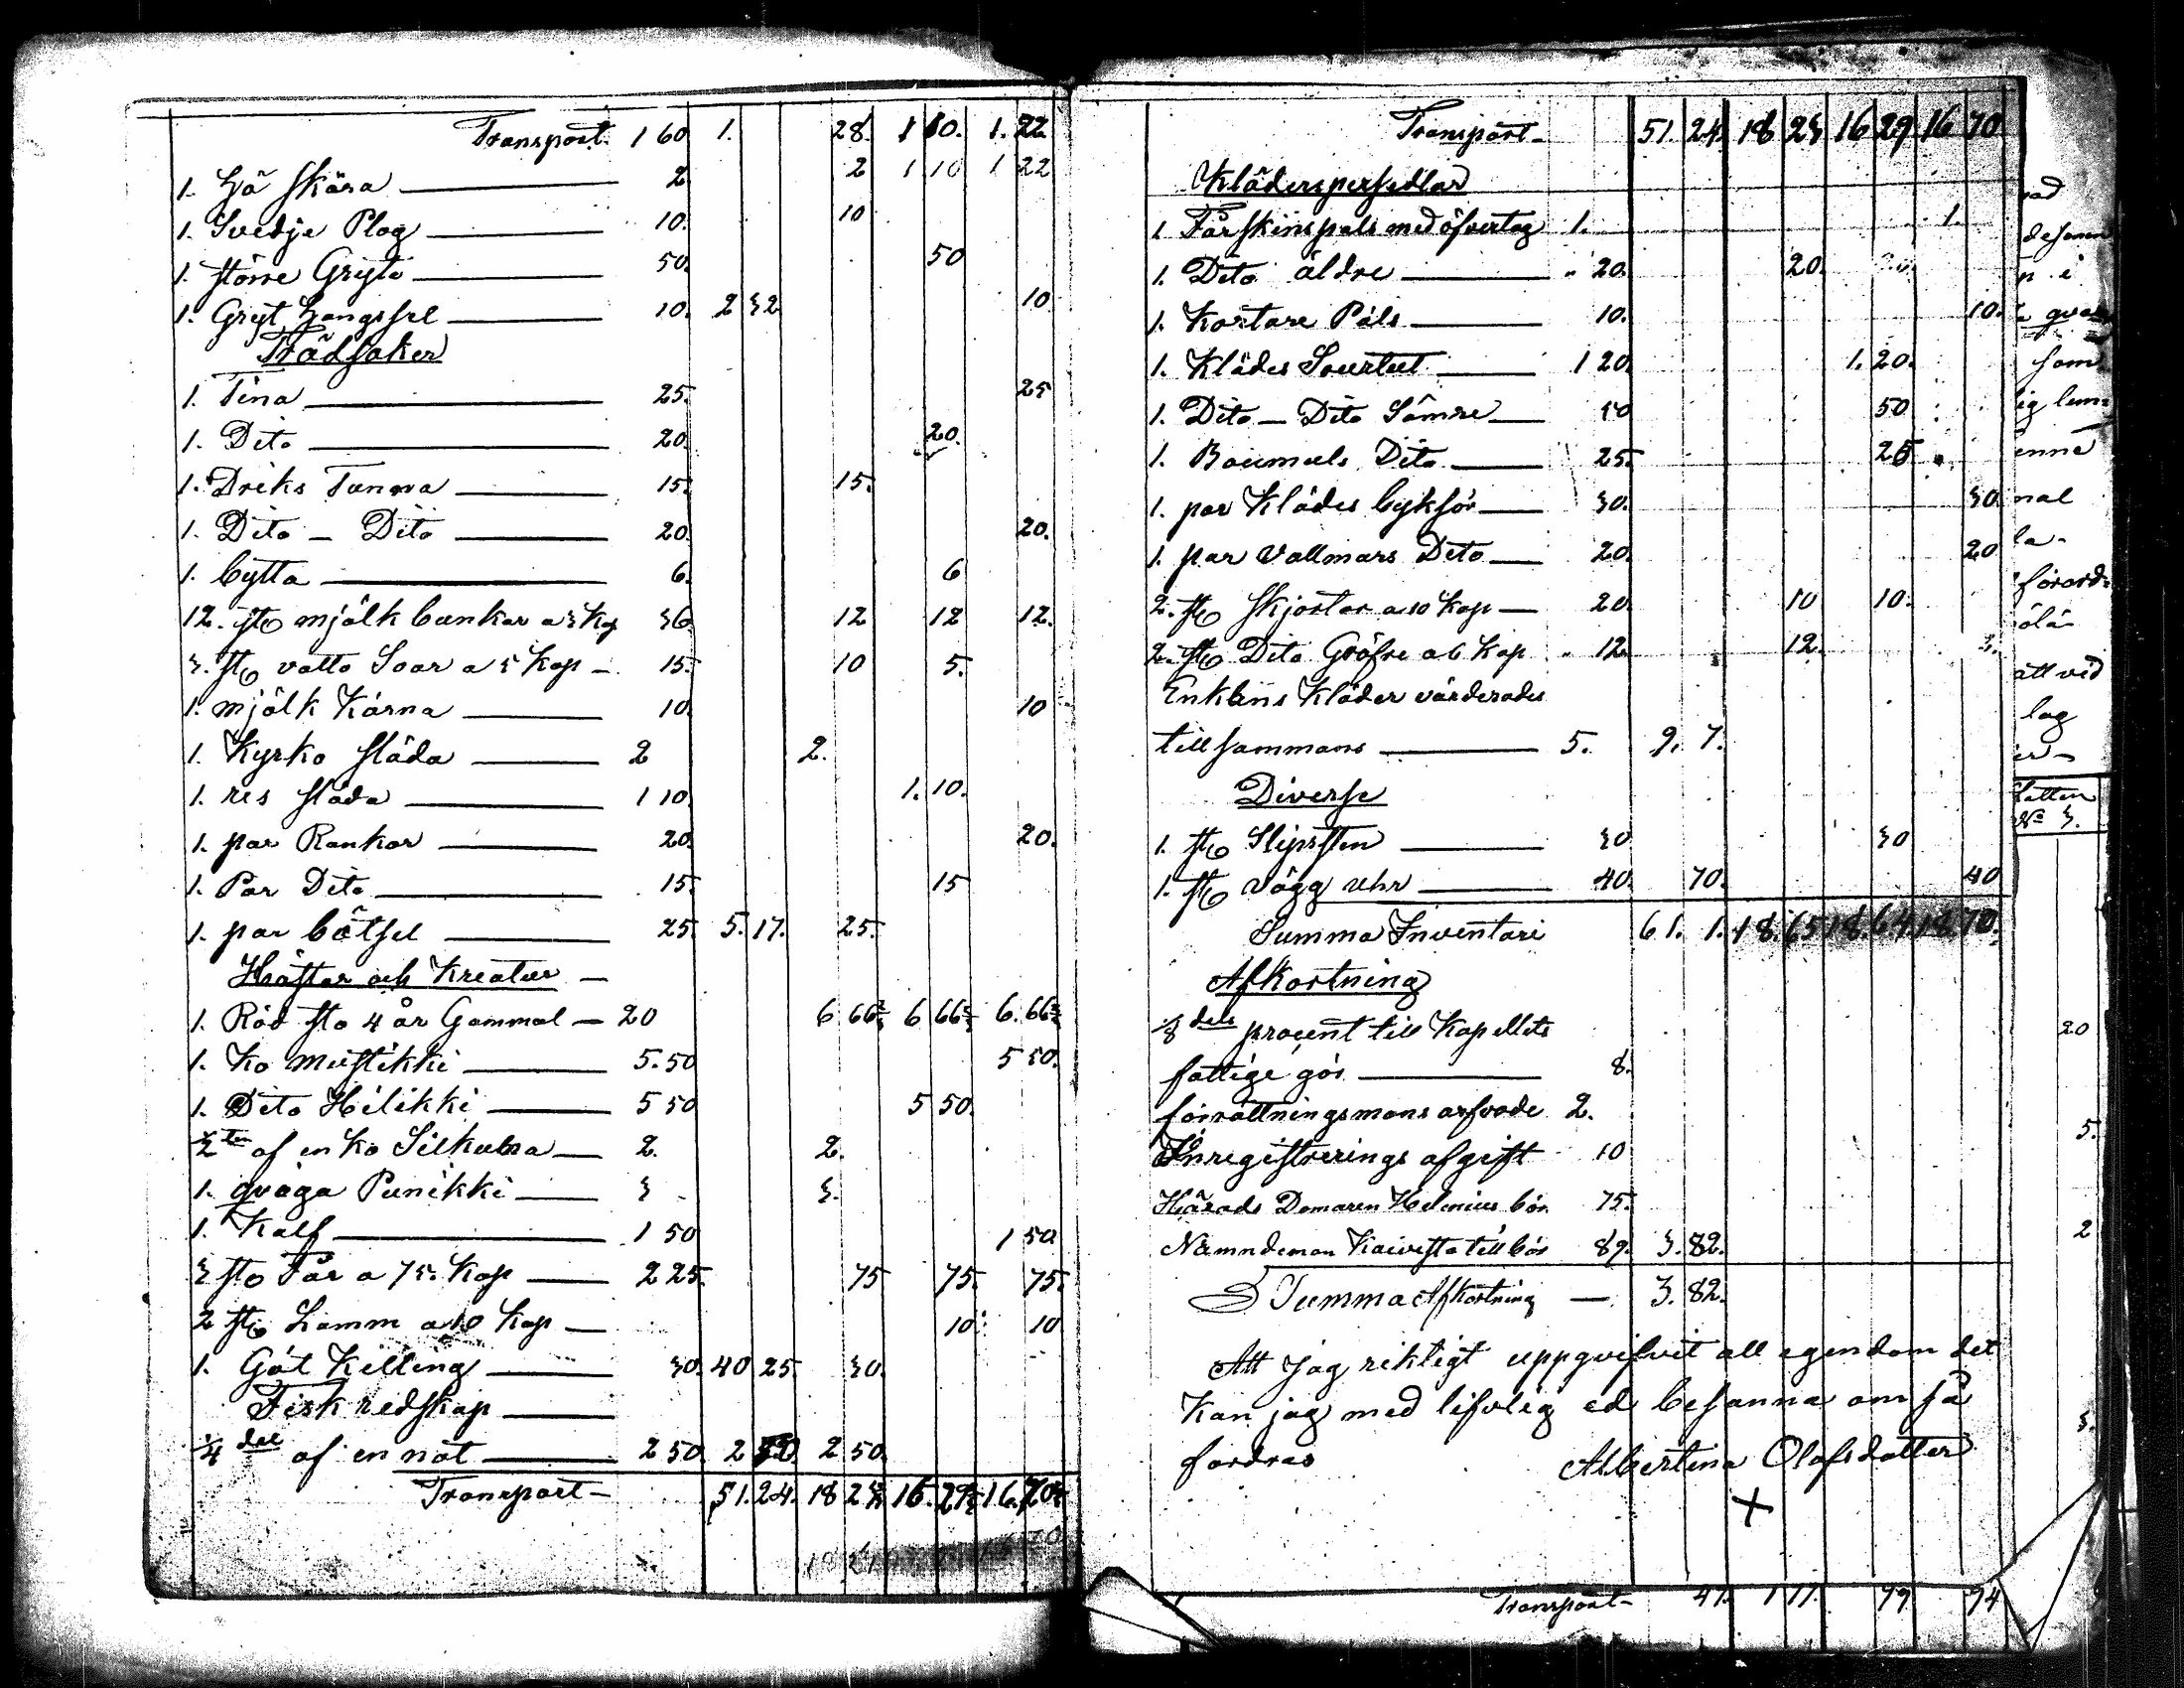 Transport 1 60 1. 28. 1 10. 1. 22
1. Hö skära — 2 2 1 10 1 22
1. Svedje Plog — 10. 10
1. större Gryta — 50. 50
1. Gryt Hangssel — 10. 2 32 10
Trädsaker
1. Tina — 25. 25
1. Dito — 20. 20.
1. Driks Tunna — 15. 15.
1. Dito — Dito — 20. 20.
1. bytta — 6. 6
12. st mjölk bunkar a 3 Kop 36 12 12 12.
3. st vatto Soar a 5 Kop — 15. 10 5.
1. mjölk Kärna — 10. 10
1. Kyrko släda — 2 2.
1. res släda — 1 10. 1. 10.
1. par Rankor — 20. 20.
1. Par Dito — 15. 15
1. par båtsel — 25. 5. 17. 25.
Hästar och Kreatur —
1. Röd sto 4 år Gammal — 20 6 66 2/3 6 66 2/3 6. 66 2/3
1. Ko Mustikki — 5. 50 5 50.
1. Dito Hilikki — 5 50 5 50.
1/2 ten af en Ko Silkulla — 2. 2.
1. qviga Punikki — 3 3.
1. Kalf — 1 50 1 50
3 st Får a 75. Kop — 2 25. 75 75. 75.
2 st Lamm a 10 Kop — 10. 10
1. Göt Killing — 30. 40 25 30.
Fisk redskap —
1/4 del af en not — 2 50. 2 50 2 50.
Transport — 51. 24. 18 23 16. 29 16. 70
Transport — 51. 24. 18 23 16 29 16 70
Klädespersedlar
1. Fårskinspals med öfvertag 1. 1.
1. Dito äldre — " 20. 20.
1. Kortare Päls — 10. 10.
1. Klädes Sourtut — 1 20. 1. 20.
1. Dito — Dito Sämre — 50 50
1. Boumuls Dito — 25. 25
1. par Klädes byksor — 30. 30.
1. par Vallmars Dito — 20. 20
2. st Skjortor a 10 Kop — 20. 10 10.
2. st Dito Gröfre a 6 Kop " 12. 12.
Enkans Kläder värderades
till sammans — 5. 9. 7.
Diverse
1. st Slipsten — 30 30
1. st Vägg uhr — 40. 70. 40
Summa Inventari 61. 1. 18. 65 18. 64. 18 70.
Afkortning
1/8 dels procent till Kapellets
fattige gör — 8.
förrättningsmans arfvode 2.
Inregistrerings afgift 10
Härads Domaren Helenius bör 75.
Nämndeman Kaivisto till bör 89. 3. 82.
Summa Afkortning — 3. 82.
Att Jag riktigt uppgvifvit all egendom det
Kan jag med lifvlig ed besanna om så
fordras Albertina Olofsdotter
X
Transport — 47. 1 11. 79 74
som
enne
att vid
lag
20
5.
2